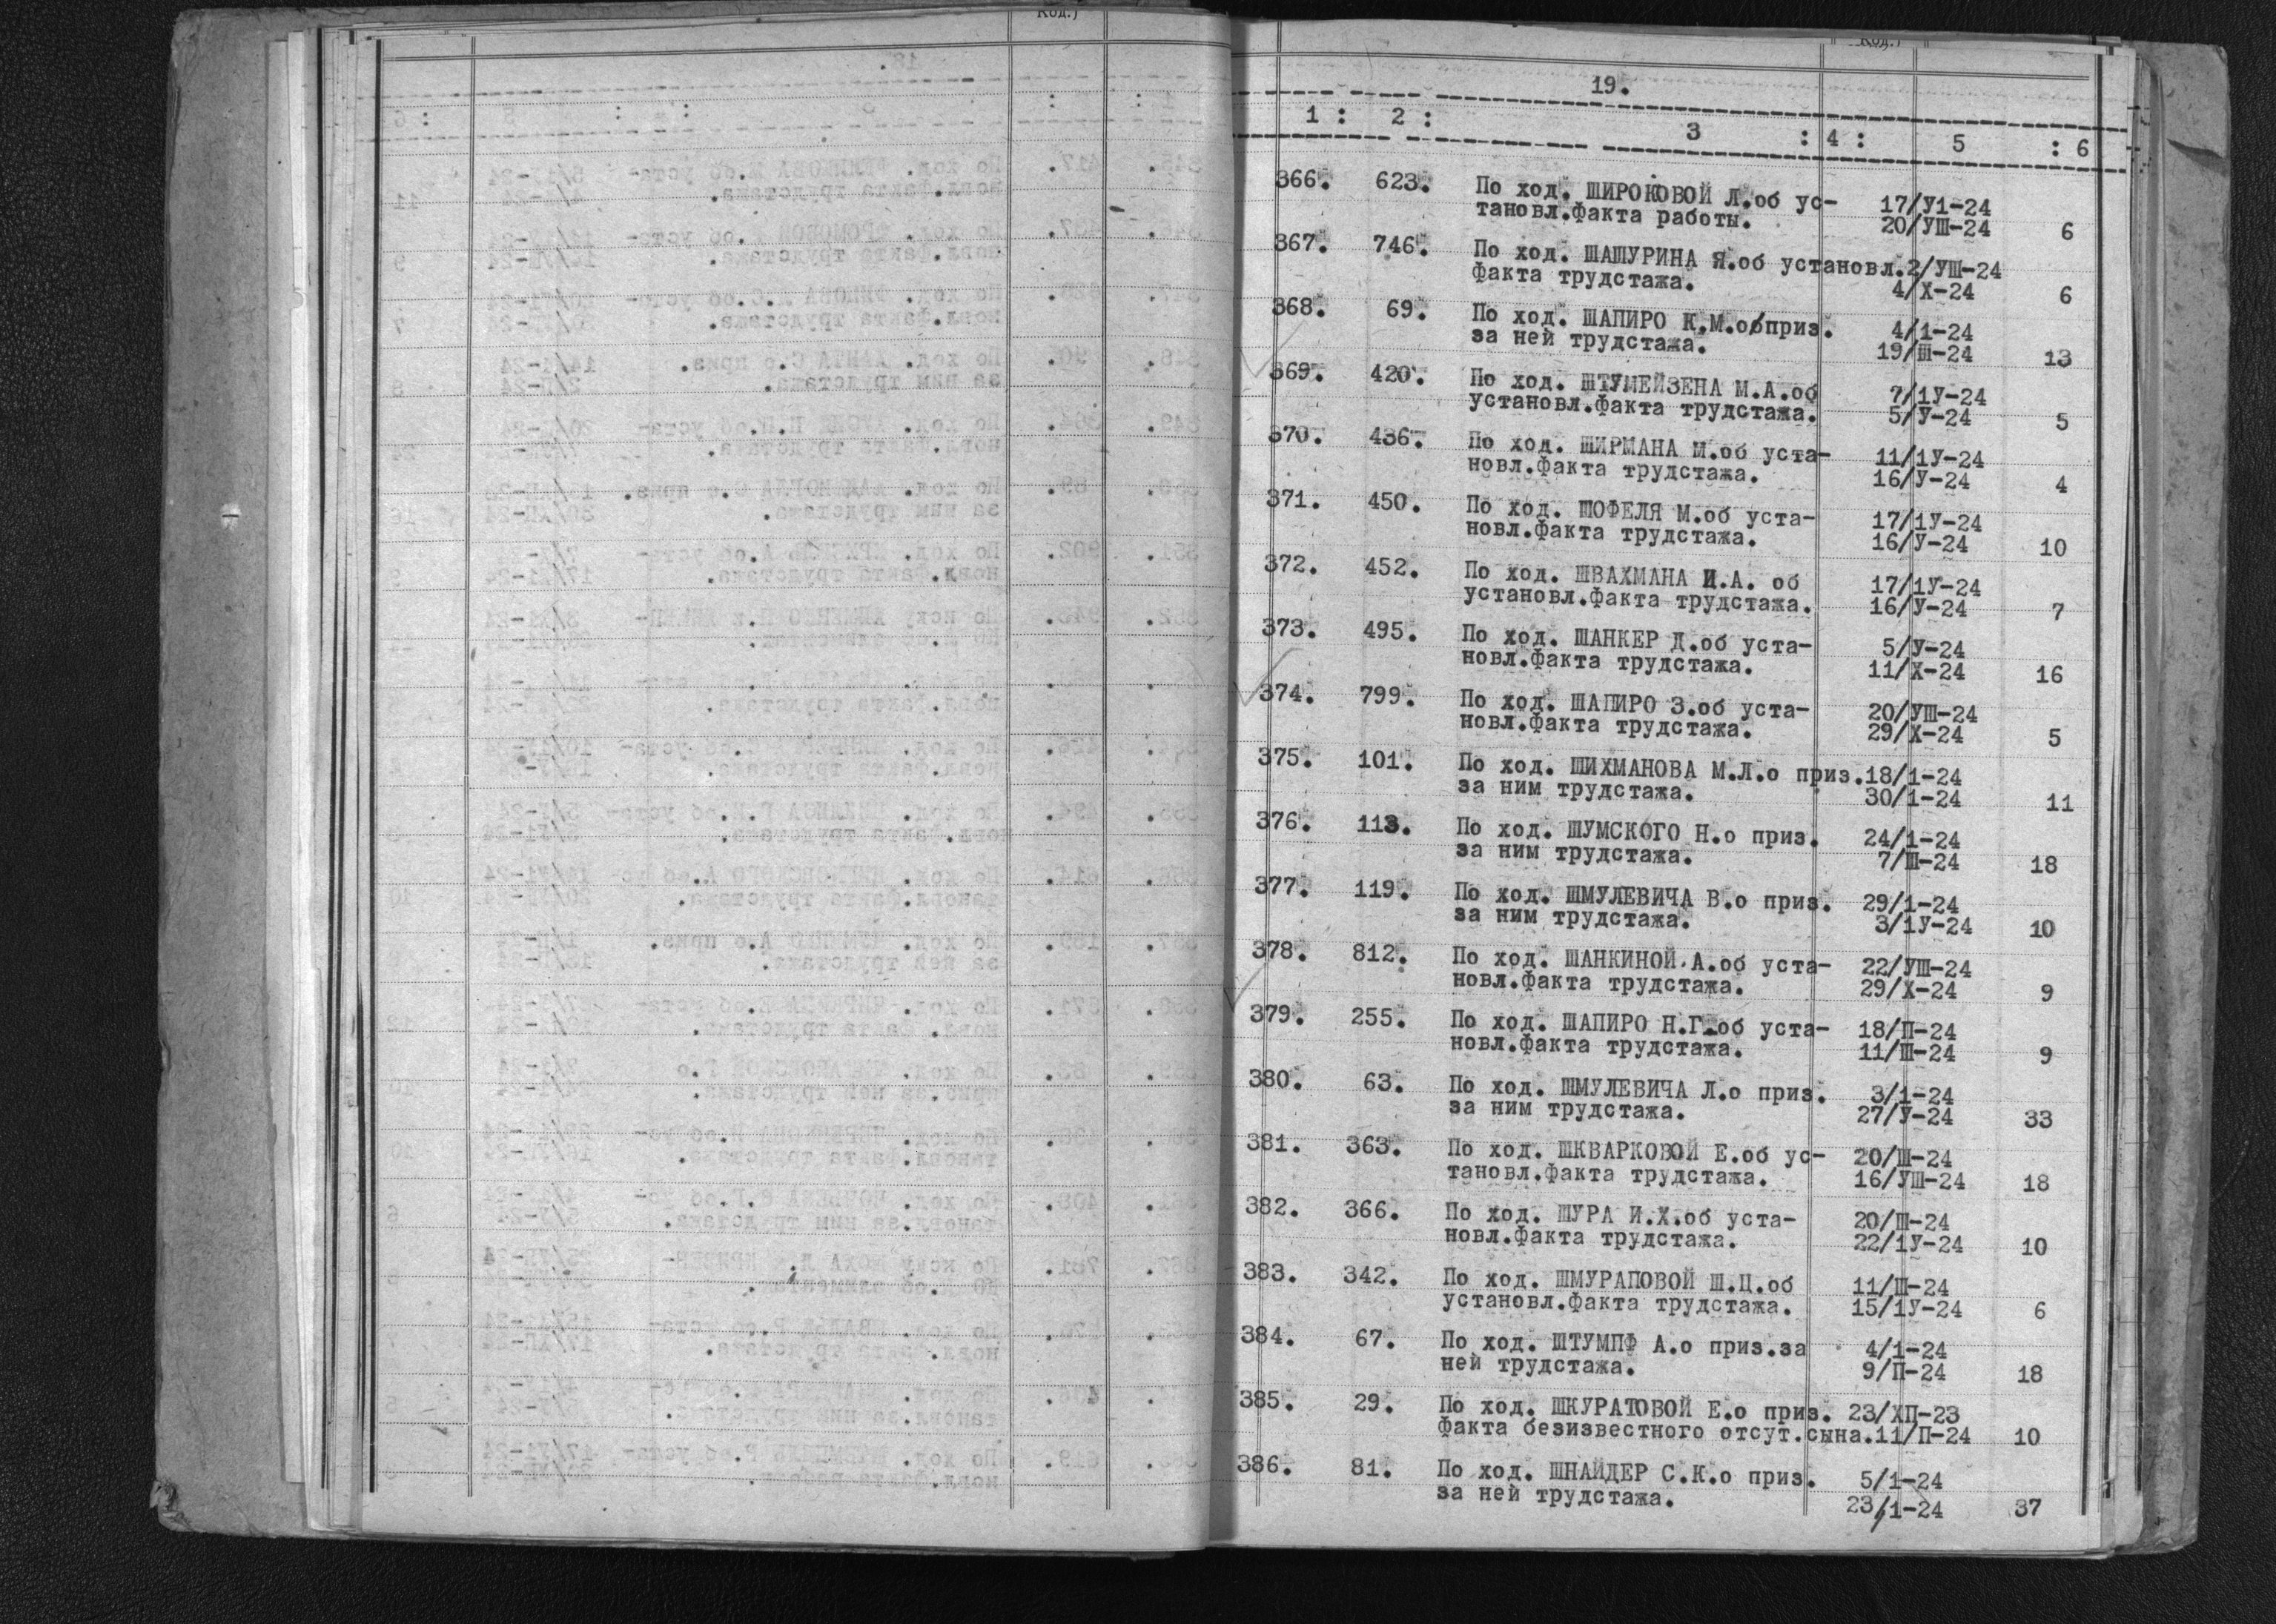 Код.)
19.
1 : 2 : 3 : 4 : 5 : 6
366. 623. По ход. ШИРОКОВОЙ Л.об ус- 17/У1-24
тановл.факта работы. 20/УШ-24 6
367. 746. По ход. ШАШУРИНА Я.об установл.2/УШ-24
факта трудстажа. 4/Х-24 6
368. 69. По ход. ШАПИРО К.М.о/приз. 4/1-24
за ней трудстажа. 19/Ш-24 13
369. 420. По ход. ШТУМЕЙЗЕНА М.А.об 7/1У-24
установл.факта трудстажа. 5/У-24 5
370. 436. По ход. ШИРМАНА М.об уста- 11/1У-24
новл.факта трудстажа. 16/У-24 4
371. 450. По ход. ШОФЕЛЯ М.об уста- 17/1У-24
новл.факта трудстажа. 16/У-24 10
372. 452. По ход. ШВАХМАНА И.А. об 17/1У-24
установл.факта трудстажа. 16/У-24 7
373. 495. По ход. ШАНКЕР Д.об уста- 5/У-24
новл.факта трудстажа. 11/Х-24 16
374. 799. По ход. ШАПИРО З.об уста- 20/УШ-24
новл.факта трудстажа. 29/Х-24 5
375. 101. По ход. ШИХМАНОВА М.Л.о приз.18/1-24
за ним трудстажа. 30/1-24 11
376. 113. По ход. ШУМСКОГО Н.о приз. 24/1-24
за ним трудстажа. 7/Ш-24 18
377. 119. По ход. ШМУЛЕВИЧА В.о приз. 29/1-24
за ним трудстажа. 3/1У-24 10
378. 812. По ход. ШАНКИНОЙ.А.об уста- 22/УШ-24
новл.факта трудстажа. 29/Х-24 9
379. 255. По ход. ШАПИРО Н.Г.об уста- 18/П-24
новл.факта трудстажа. 11/Ш-24 9
380. 63. По ход. ШМУЛЕВИЧА Л.о приз. 3/1-24
за ним трудстажа. 27/У-24 33
381. 363. По ход. ШКВАРКОВОЙ Е.об ус- 20/Ш-24
тановл.факта трудстажа. 16/УШ-24 18
382. 366. По ход. ШУРА И.Х.об уста- 20/Ш-24
новл.факта трудстажа. 22/1У-24 10
383. 342. По ход. ШМУРАПОВОЙ Ш.Ц.об 11/Ш-24
установл.факта трудстажа. 15/1У-24 6
384. 67. По ход. ШТУМПФ А.о приз.за 4/1-24
ней трудстажа. 9/П-24 18
385. 29. По ход. ШКУРАТОВОЙ Е.о приз. 23/ХП-23
факта безизвестного отсут.сына.11/П-24 10
386. 81. По ход. ШНАЙДЕР С.К.о приз. 5/1-24
за ней трудстажа. 23/1-24 37